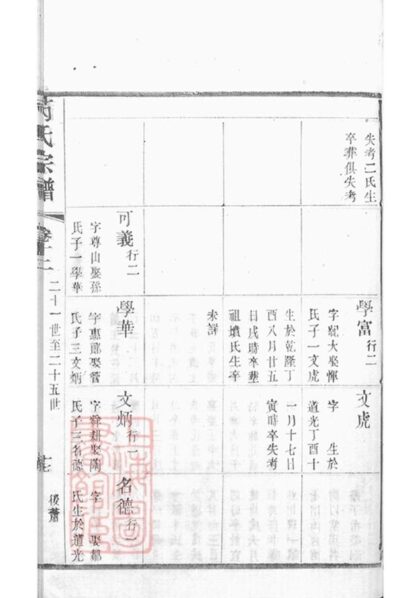 失考二氏生
卒葬俱失考
學富行二
字
氏子一文虎
生於乾隆丁
酉八月廿五
日戌時卒葬
祖墳氏生卒
未詳
文虎
字 生於
道光丁酉十
一月十七日
寅時卒失考
可義行二
字尊山娶孫
氏子一學華
學華
氏子三文炳
文炳行一
氏子三名德
名德行一
字 娶
氏生於道光
氏宗譜
二十一世至二十五世
後蕭